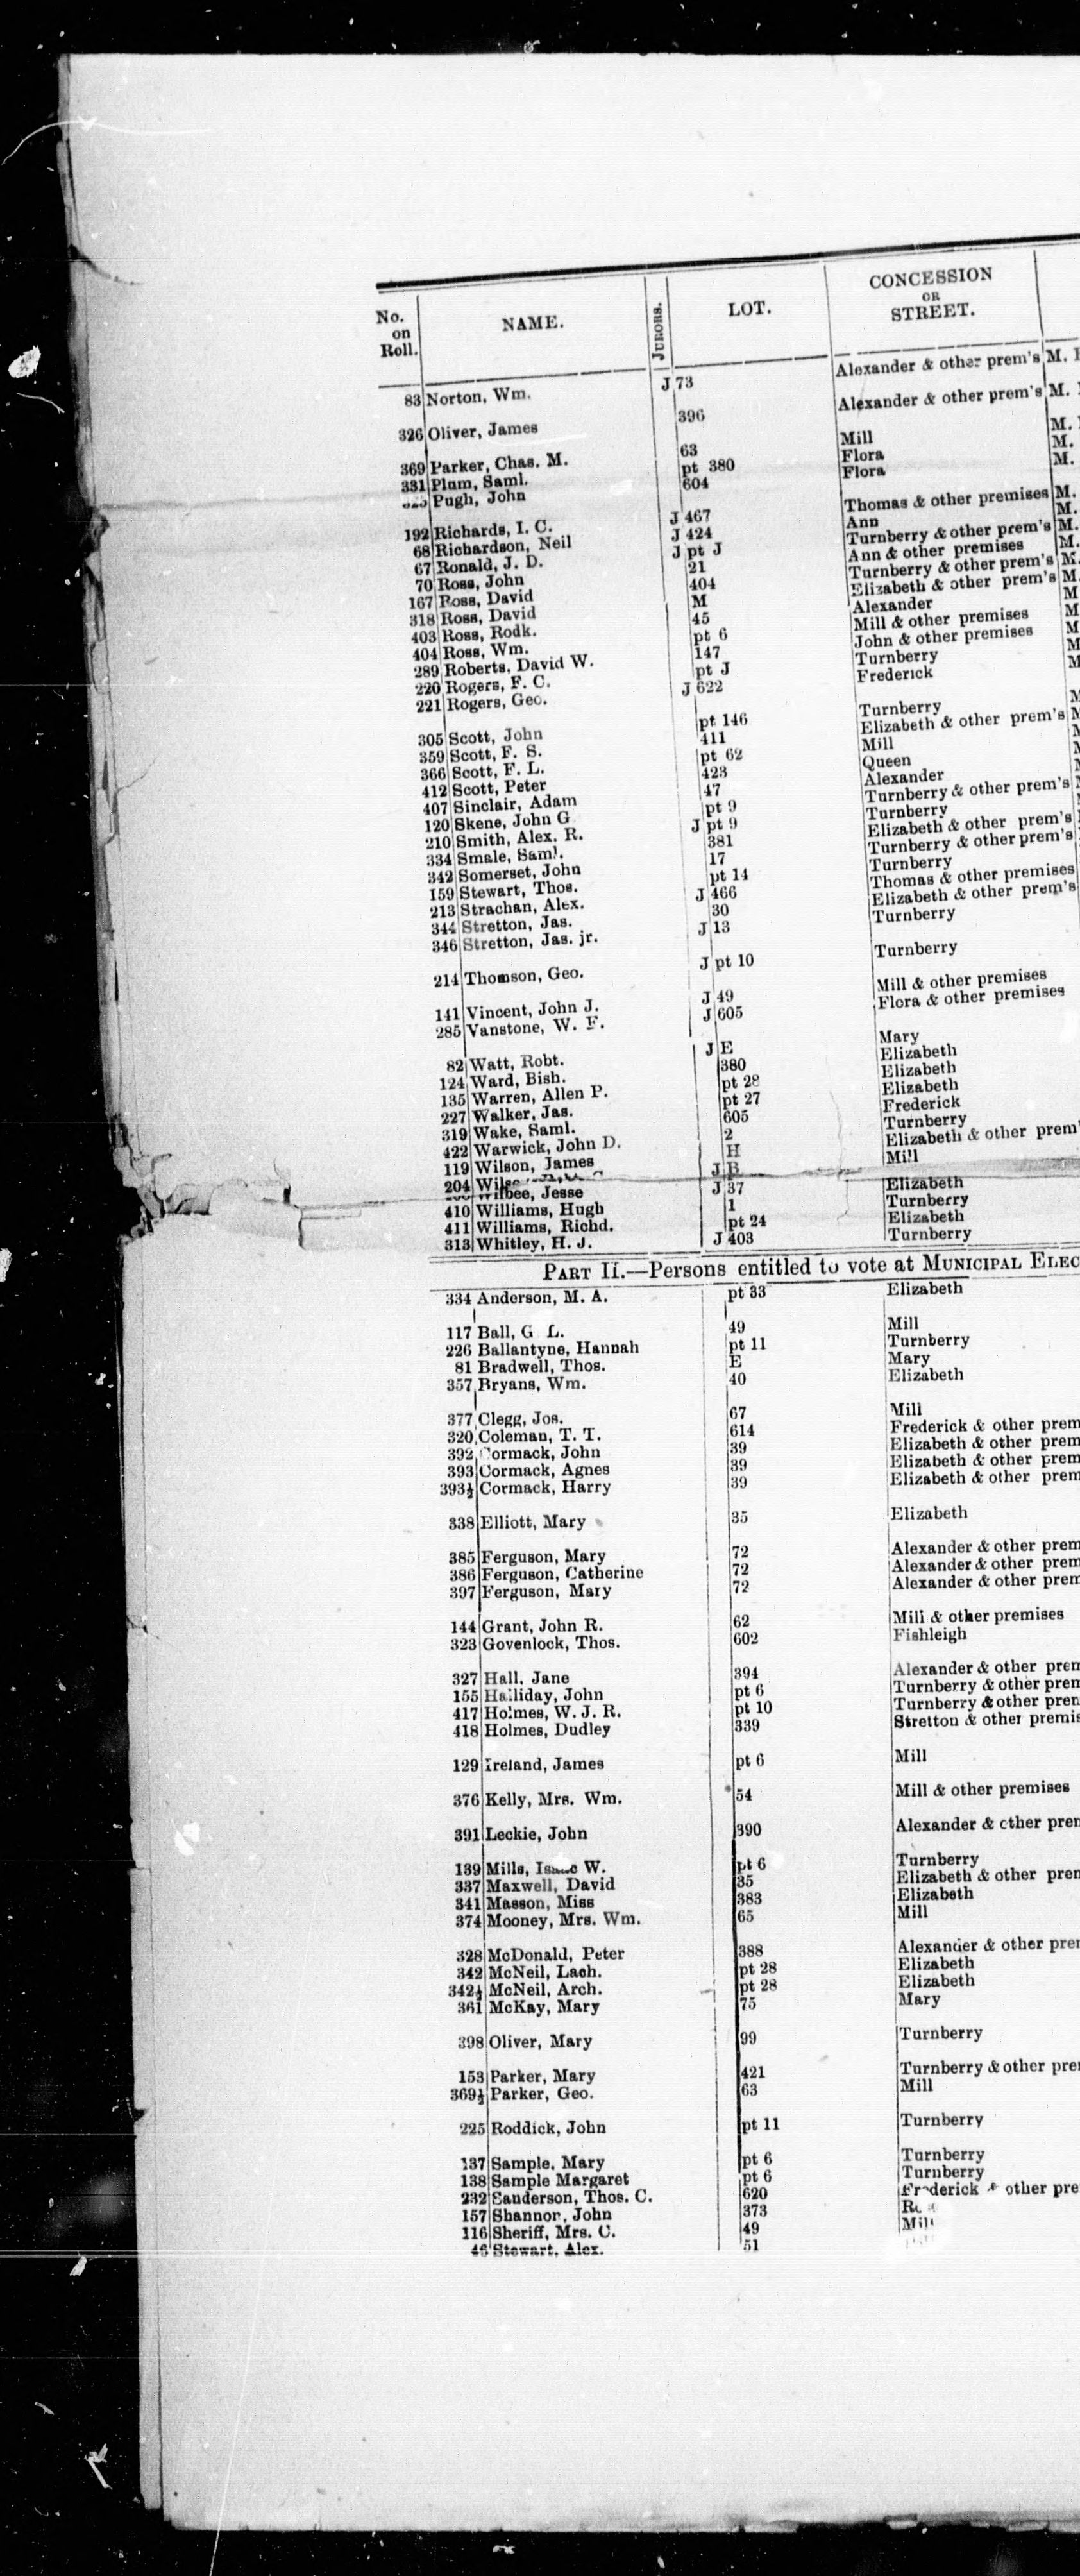 No. on Roll. NAME. JURORS. LOT. CONCESSION OR STREET.
83 Norton, Wm. J 73 Alexander & other prem's M.
326 Oliver, James 396 Alexander & other prem's M.
369 Parker, Chas. M. 63 Mill M.
331 Plum, Saml. pt 380 Flora M.
Pugh, John 604 Flora M.
192 Richards, I. C. J 467 Thomas & other premises M.
68 Richardson, Neil J 424 Ann M.
67 Ronald, J. D. J pt J Turnberry & other prem's M.
70 Ross, John 21 Ann & other premises M.
167 Ross, David 404 Turnberry & other prem's M.
318 Ross, David M Elizabeth & other prem's M.
403 Ross, Rodk. 45 Alexander M
404 Ross, Wm. pt 6 Mill & other premises M
289 Roberts, David W. 147 John & other premises M
220 Rogers, F. C. pt J Turnberry M
221 Rogers, Geo. J 622 Frederick M
305 Scott, John pt 146 Turnberry M
359 Scott, F. S. 411 Elizabeth & other prem's M
366 Scott, F. L. pt 62 Mill
412 Scott, Peter 423 Queen
407 Sinclair, Adam 47 Alexander
120 Skene, John G pt 9 Turnberry & other prem's
210 Smith, Alex. R. J pt 9 Turnberry
334 Smale, Saml. 381 Elizabeth & other prem's
342 Somerset, John 17 Turnberry & other prem's
159 Stewart, Thos. pt 14 Turnberry
213 Strachan, Alex. J 466 Thomas & other premises
344 Stretton, Jas. 30 Elizabeth & other prem's
346 Stretton, Jas. jr. J 13 Turnberry
214 Thomson, Geo. J pt 10 Turnberry
141 Vincent, John J. J 49 Mill & other premises
285 Vanstone, W. F. J 605 Flora & other premises
82 Watt, Robt. J E Mary
124 Ward, Bish. 380 Elizabeth
135 Warren, Allen P. pt 28 Elizabeth
227 Walker, Jas. pt 27 Elizabeth
319 Wake, Saml. 605 Frederick
422 Warwick, John D. 2 Turnberry
119 Wilson, James H Elizabeth & other prem'
204 J B Mill
Wilbee, Jesse J 37 Elizabeth
410 Williams, Hugh 1 Turnberry
411 Williams, Richd. pt 24 Elizabeth
313 Whitley, H. J. J 403 Turnberry
PART II.—Persons entitled to vote at MUNICIPAL ELEC
334 Anderson, M. A. pt 33 Elizabeth
117 Ball, G L. 49 Mill
226 Ballantyne, Hannah pt 11 Turnberry
81 Bradwell, Thos. E Mary
357 Bryans, Wm. 40 Elizabeth
377 Clegg, Jos. 67 Mill
320 Coleman, T. T. 614 Frederick & other prem
392 Cormack, John 39 Elizabeth & other prem
393 Cormack, Agnes 39 Elizabeth & other prem
393½ Cormack, Harry 39 Elizabeth & other prem
338 Elliott, Mary 35 Elizabeth
385 Ferguson, Mary 72 Alexander & other prem
386 Ferguson, Catherine 72 Alexander & other prem
397 Ferguson, Mary 72 Alexander & other prem
144 Grant, John R. 62 Mill & other premises
323 Govenlock, Thos. 602 Fishleigh
327 Hall, Jane 394 Alexander & other prem
155 Halliday, John pt 6 Turnberry & other prem
417 Holmes, W. J. R. pt 10 Turnberry & other prem
418 Holmes, Dudley 339 Stretton & other premis
129 Ireland, James pt 6 Mill
376 Kelly, Mrs. Wm. 54 Mill & other premises
391 Leckie, John 390 Alexander & other prem
139 Mills, Isaac W. pt 6 Turnberry
337 Maxwell, David 35 Elizabeth & other prem
341 Masson, Miss 383 Elizabeth
374 Mooney, Mrs. Wm. 65 Mill
328 McDonald, Peter 388 Alexander & other prem
342 McNeil, Lach. pt 28 Elizabeth
342½ McNeil, Arch. pt 28 Elizabeth
361 McKay, Mary 75 Mary
398 Oliver, Mary 99 Turnberry
153 Parker, Mary 421 Turnberry & other prem
369½ Parker, Geo. 63 Mill
225 Roddick, John pt 11 Turnberry
137 Sample, Mary pt 6 Turnberry
138 Sample Margaret pt 6 Turnberry
232 Sanderson, Thos. C. 620 Frederick & other pre
157 Shannon, John 373
116 Sheriff, Mrs. C. 49 Mill
46 Stewart, Alex. 51